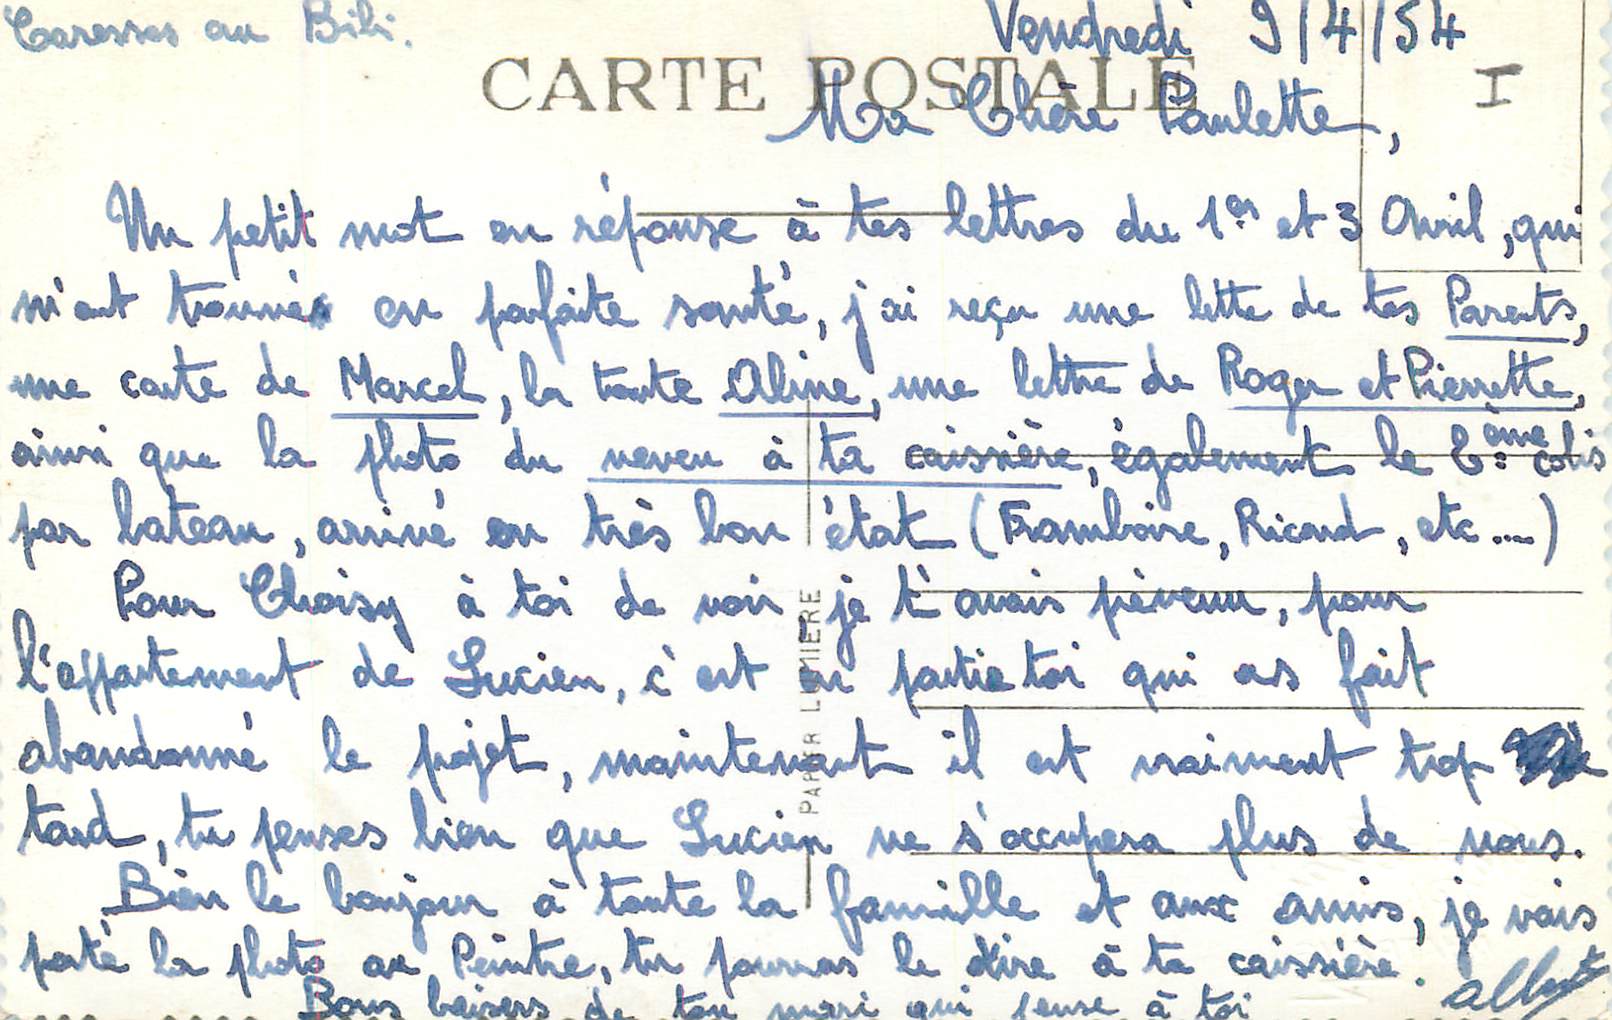 Caresses au Bibi.
Vendredi 9/4/54
CARTE POSTALE
I
Ma Chère Paulette,
Un petit mot en réponse à tes lettres du 1er et 3 Avril, qui
m'ont trouvé en parfaite santé, j'ai reçu une lette de tes Parents,
une carte de Marcel, la tante Aline, une lettre de Roger et Pierrette,
ainsi que la photo du neveu à ta caissière, également le 2ème colis
par bateau, arrivé en très bon état (Framboise, Ricard, etc....)
Pour Choisy à toi de voir, je t'avais prévenu, pour
l'appartement de Lucien, c'est en partie toi qui as fait
abandonné le projet, maintenant il est vraiment trop
tard, tu penses bien que Lucien ne s'occupera plus de nous.
Bien le bonjour à toute la famille et aux amis, je vais
porté la photo au Peintre, tu pourras le dire à ta caissière.
Bons baisers de ton mari qui pense à toi
Albert
PAPIER LUMIERE